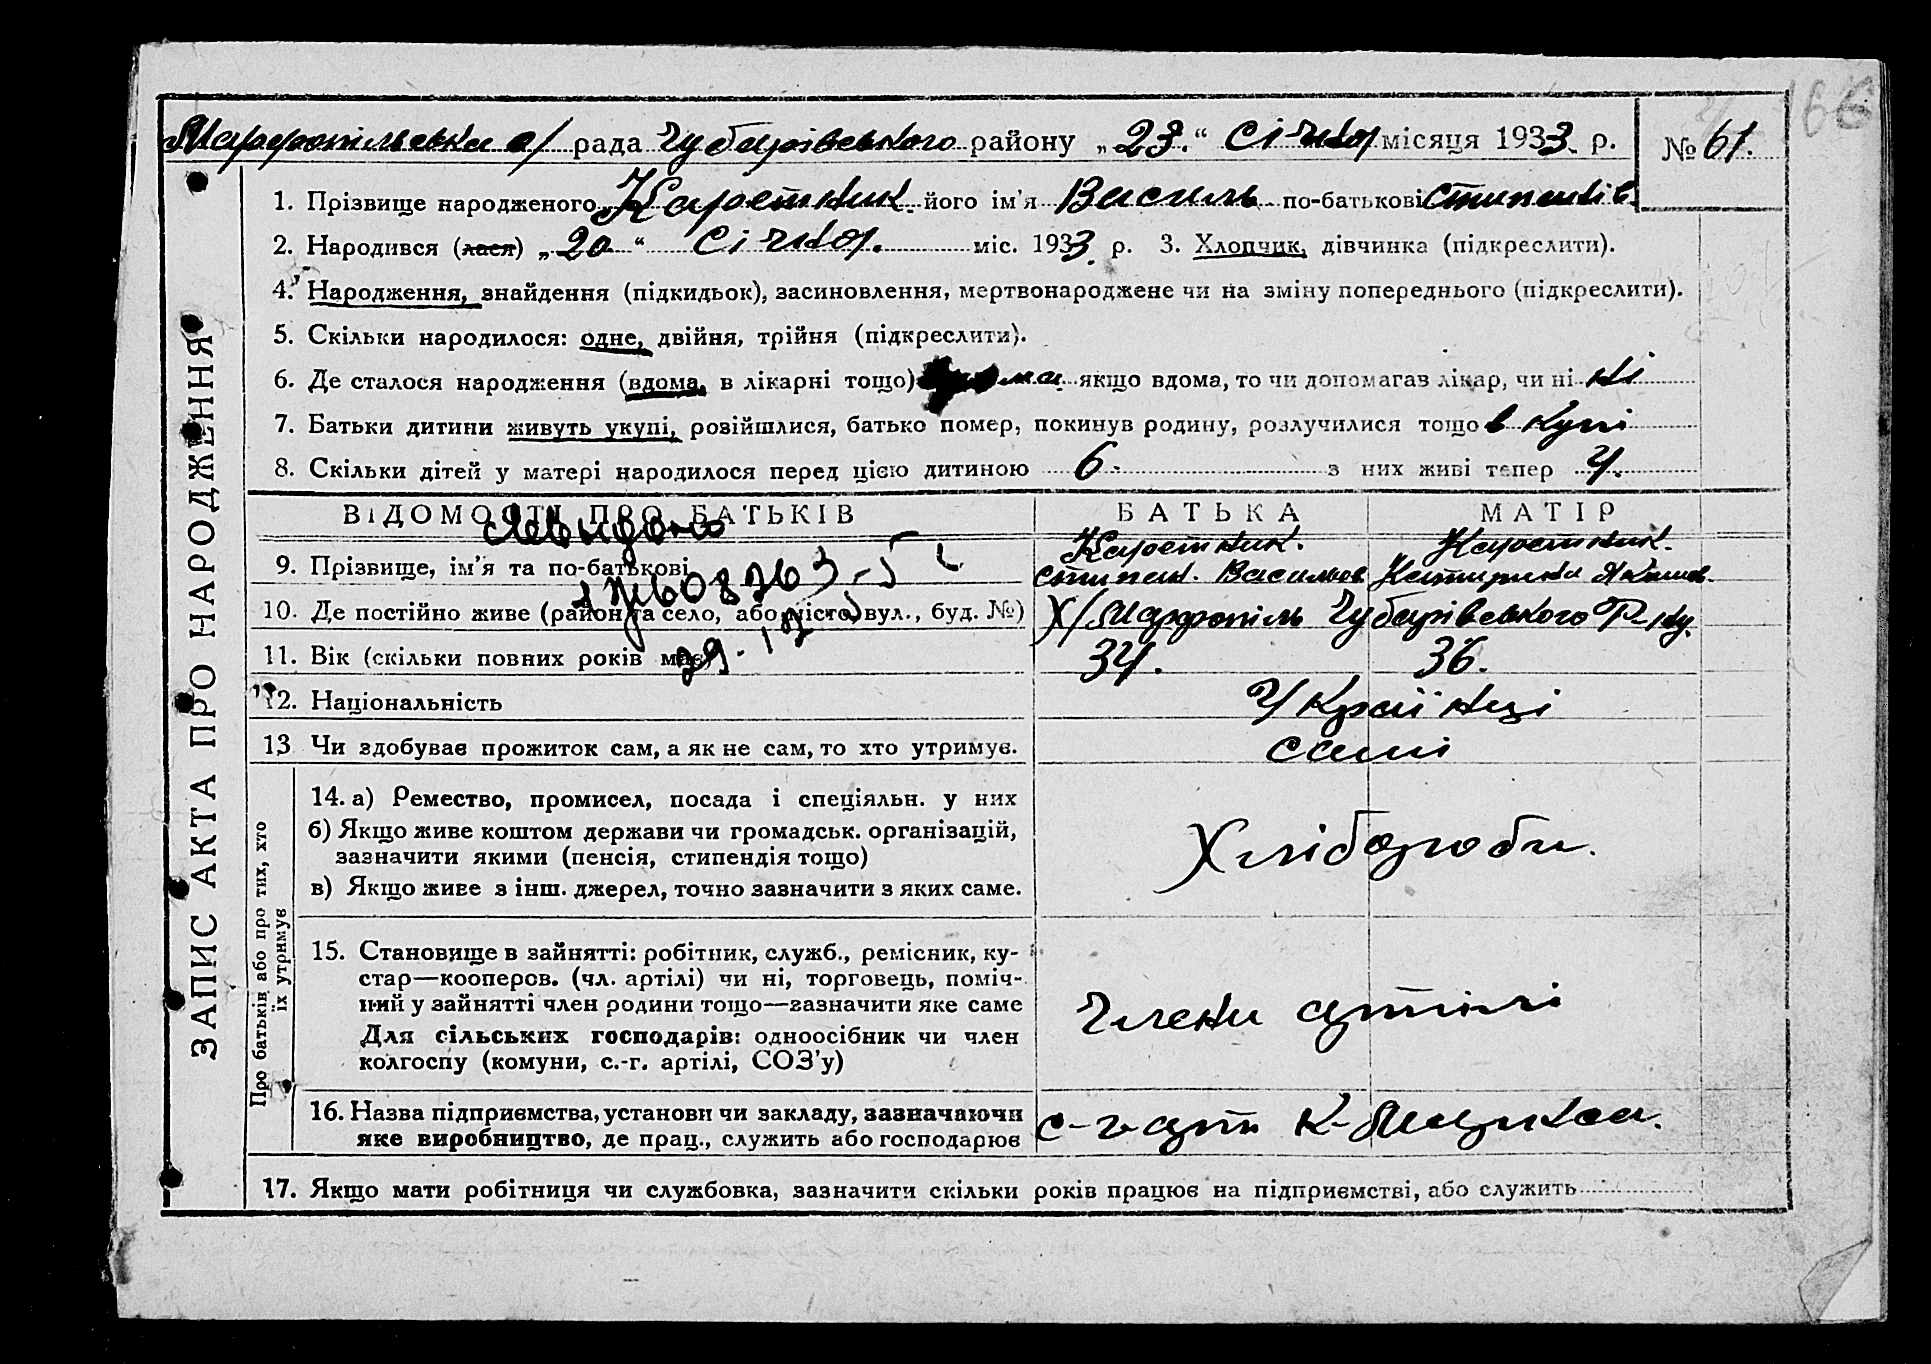 166
Марфопільська с/ рада Чубарівського району „23.“ Січня місяця 1933. р. № 61.
1. Прізвище народженого Каретник. його ім'я Василь по-батькові Степанів
2. Народився (лася) „20“ Січня. міс. 1933. р. 3. Хлопчик, дівчинка (підкреслити).
4. Народження, знайдення (підкидьок), засиновлення, мертвонароджене чи на зміну попереднього (підкреслити).
5. Скільки народилося: одне, двійня, трійня (підкреслити).
6. Де сталося народження (вдома, в лікарні тощо) якщо вдома, то чи допомагав лікар, чи ні ні
7. Батьки дитини живуть укупі, розійшлися, батько помер, покинув родину, розлучилися тощо в купі
8. Скільки дітей у матері народилося перед цією дитиною 6. з них живі тепер 4.
ВІДОМОСТІ ПРО БАТЬКІВ БАТЬКА МАТІР
9. Прізвище, ім'я та по-батькові Каретник. Каретник.
Степан. Васильов Катирина Якимов.
10. Де постійно живе (район та село, або місто, вул., буд. №) Х/Марфопіль Чубарівського Р-ну.
11. Вік (скільки повних років має) 34. 36.
29.12
12. Національність Українці
13 Чи здобуває прожиток сам, а як не сам, то хто утримує. самі
14. а) Ремество, промисел, посада і спеціяльн. у них
б) Якщо живе коштом держави чи громадськ. організацій,
зазначити якими (пенсія, стипендія тощо)
Хлібороби.
в) Якщо живе з інш. джерел, точно зазначити з яких саме.
15. Становище в зайнятті: робітник, служб., ремісник, ку-
стар—кооперов. (чл. артілі) чи ні, торговець, поміч-
ний у зайнятті член родини тощо—зазначити яке саме
Члени артілі
Для сільських господарів: одноосібник чи член
колгоспу (комуни, с.-г. артілі, СОЗ'у)
16. Назва підприємства, установи чи закладу, зазначаючи
яке виробництво, де прац., служить або господарює
с-г арт К-Маркса.
17. Якщо мати робітниця чи службовка, зазначити скільки років працює на підприємстві, або служить
ЗАПИС АКТА ПРО НАРОДЖЕННЯ
Про батьків або про тих, хто
їх утримує